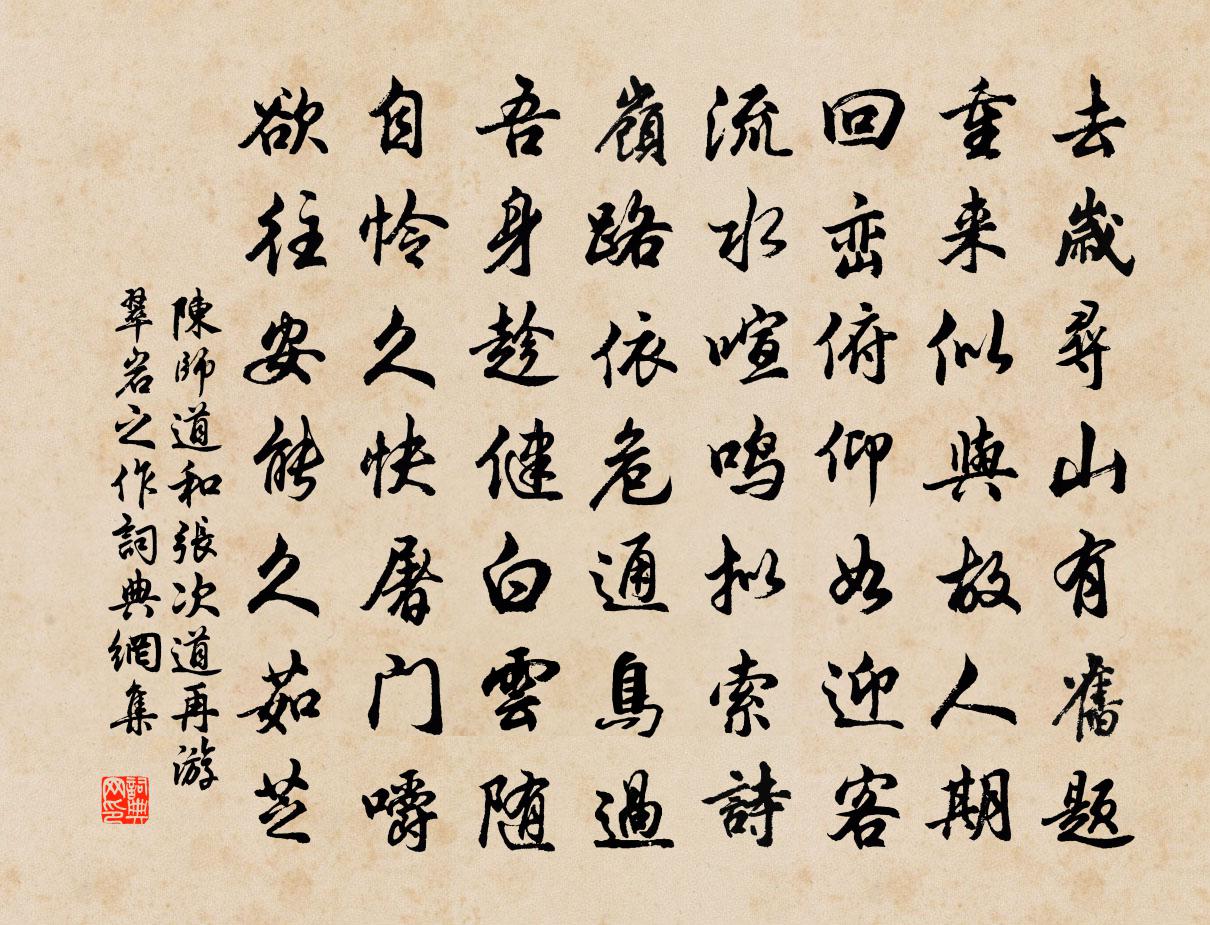 去歲尋山有舊题
重来似與故人期
回峦俯仰如迎客
流水喧鸣拟索詩
嶺路依危通鳥過
吾身趁健白雲随
自怜久快屠门嚼
欲往安能久茹芝
陳師道和張次道再游
翠岩之作詞典網集
詞典网印